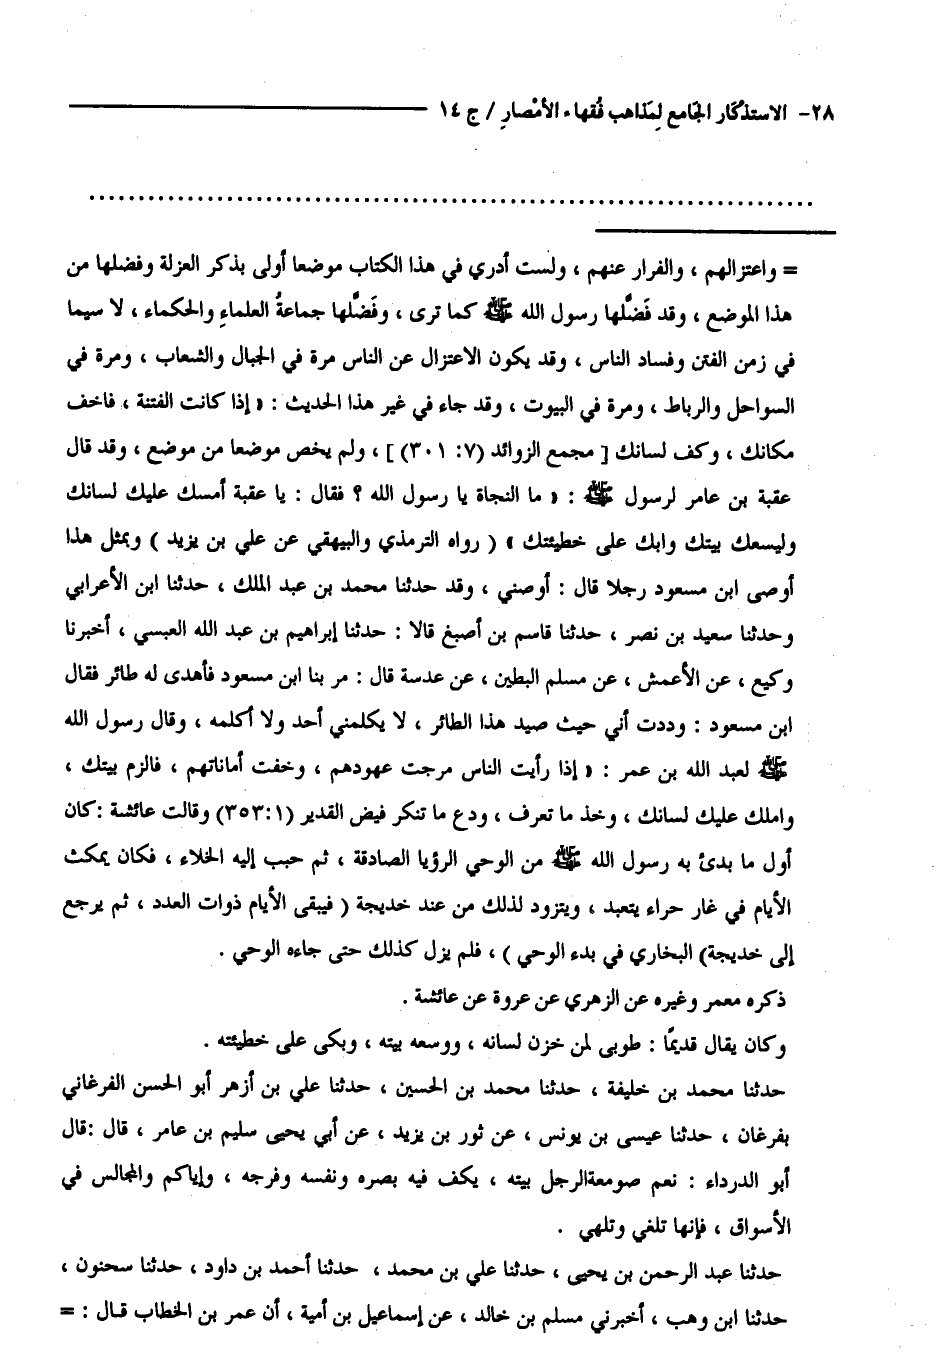 ٢٨- الاستذْكَار الجَامع لِمَذاهب فُقهاء الأمْصارِ / ج ١٤
= واعتزالهم ، والفرار عنهم ، ولست أدري في هذا الكتاب موضعا أولى بذكر العزلة وفضلها من
هذا الموضع ، وقد فَضَّلها رسول الله ﷺ كما ترى ، وفَضَّلها جماعةُ العلماءِ والحكماء ، لا سيما
في زمن الفتن وفساد الناس ، وقد يكون الاعتزال عن الناس مرة في الجبال والشعاب ، ومرة في
السواحل والرباط ، ومرة في البيوت ، وقد جاء في غير هذا الحديث : « إذا كانت الفتنة ، فاخف
مكانك ، وكف لسانك [ مجمع الزوائد (٧: ٣٠١) ] ، ولم يخص موضعا من موضع ، وقد قال
عقبة بن عامر لرسول ﷺ : « ما النجاة يا رسول الله ؟ فقال : يا عقبة أمسك عليك لسانك
وليسعك بيتك وابك على خطيئتك » ( رواه الترمذي والبيهقي عن علي بن يزيد ) وبمثل هذا
أوصى ابن مسعود رجلا قال : أوصني ، وقد حدثنا محمد بن عبد الملك ، حدثنا ابن الأعرابي
وحدثنا سعيد بن نصر ، حدثنا قاسم بن أصبغ قالا : حدثنا إبراهيم بن عبد الله العبسي ، أخبرنا
وكيع ، عن الأعمش ، عن مسلم البطين ، عن عدسة قال : مر بنا ابن مسعود فأهدى له طائر فقال
ابن مسعود : وددت أني حيث صيد هذا الطائر ، لا يكلمني أحد ولا أكلمه ، وقال رسول الله
ﷺ لعبد الله بن عمر : « إذا رأيت الناس مرجت عهودهم ، وخفت أماناتهم ، فالزم بيتك ،
واملك عليك لسانك ، وخذ ما تعرف ، ودع ما تنكر فيض القدير (٣٥٣:١) وقالت عائشة :كان
أول ما بدئ به رسول الله ﷺ من الوحي الرؤيا الصادقة ، ثم حبب إليه الخلاء ، فكان يمكث
الأيام في غار حراء يتعبد ، ويتزود لذلك من عند خديجة ( فيبقى الأيام ذوات العدد ، ثم يرجع
إلى خديجة) البخاري في بدء الوحي ) ، فلم يزل كذلك حتى جاءه الوحي .
ذكره معمر وغيره عن الزهري عن عروة عن عائشة .
وكان يقال قديمًا : طوبى لمن خزن لسانه ، ووسعه بيته ، وبكى على خطيئته .
حدثنا محمد بن خليفة ، حدثنا محمد بن الحسين ، حدثنا علي بن أزهر أبو الحسن الفرغاني
بفرغان ، حدثنا عيسى بن يونس ، عن ثور بن يزيد ، عن أبي يحيى سليم بن عامر ، قال :قال
أبو الدرداء : نعم صومعةالرجل بيته ، يكف فيه بصره ونفسه وفرجه ، وإياكم والمجالس في
الأسواق ، فإنها تلغي وتلهي .
حدثنا عبد الرحمن بن يحيى ، حدثنا علي بن محمد ، حدثنا أحمد بن داود ، حدثنا سحنون ،
حدثنا ابن وهب ، أخبرني مسلم بن خالد ، عن إسماعيل بن أمية ، أن عمر بن الخطاب قال : =